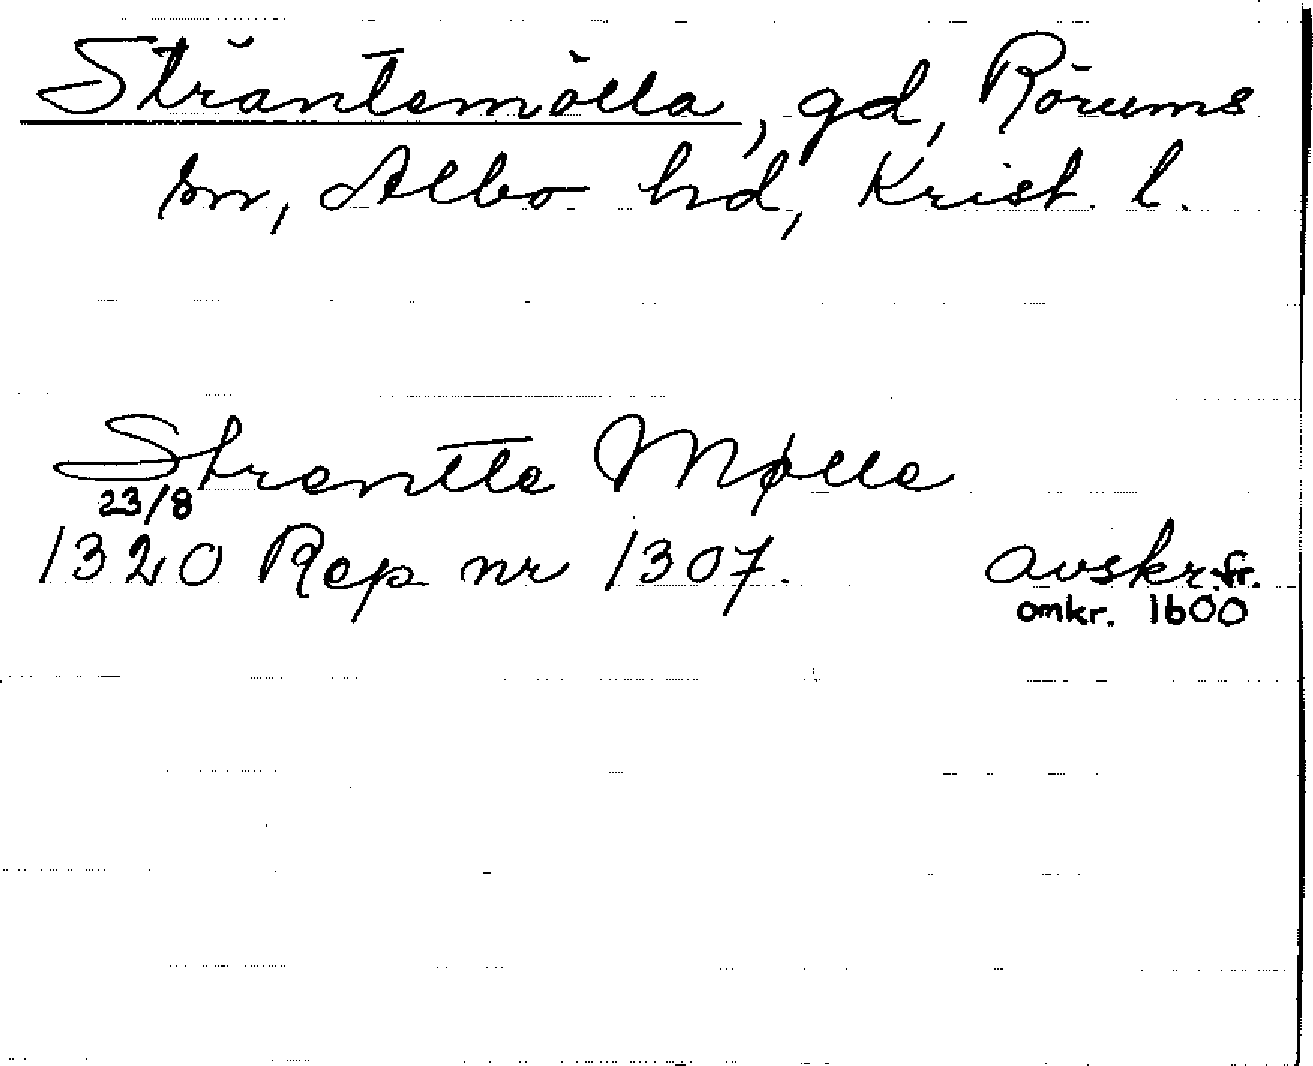 Stråntemölla, gd, Rörums
sn, Albo hd, Krist. l.
Strantte Mølle
23/8
1320 Rep nr 1307. avskr. fr.
omkr. 1600